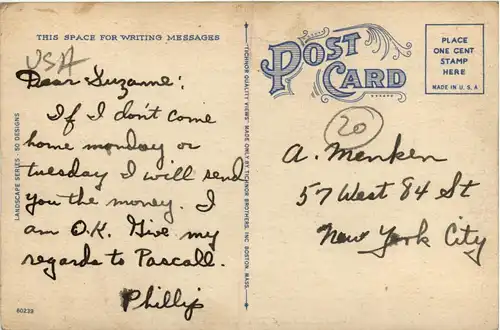 THIS SPACE FOR WRITING MESSAGES
USA
Dear Suzanne:
If I don't come
home monday or
tuesday I will send
you the money. I
am O.K. Give my
regards to Pascall.
Phillip
60239
LANDSCAPE SERIES - 50 DESIGNS
"TICHNOR QUALITY VIEWS" MADE ONLY BY TICHNOR BROTHERS, INC. BOSTON, MASS.
POST
CARD
PLACE
ONE CENT
STAMP
HERE
MADE IN U.S.A
20
A. Menken
57 West 84 St
New York City